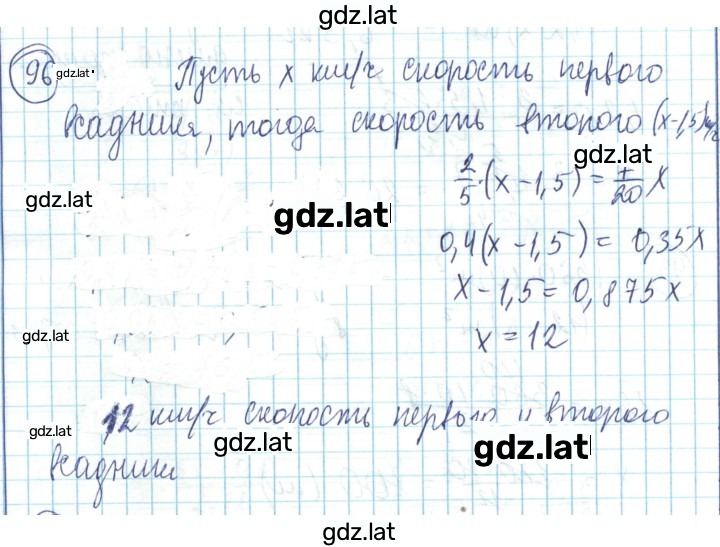 gdz.lat
96 gdz.lat Пусть x км/ч скорость первого
всадника, тогда скорость второго (x-1,5) км/ч
gdz.lat
2/5·(x-1,5) = 7/20 x
gdz.lat
gdz.lat
0,4(x-1,5) = 0,35x
x-1,5 = 0,875x
gdz.lat
x = 12
12 км/ч скорость первого и второго
gdz.lat
gdz.lat
gdz.lat
всадники
gdz.lat